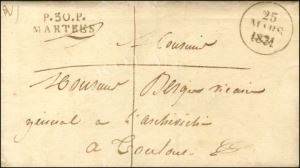 P.30.P.
MARTRES
25
MARS
1831
A Monsieur
Monsieur Berger vicaire
général à l'archevêché
à Toulouse